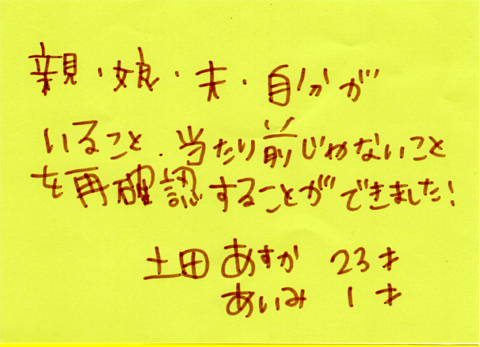 親・娘・夫・自分が
いること、当たり前じゃないこと
を再確認することができました!
土田あすか 23才
あいみ 1才